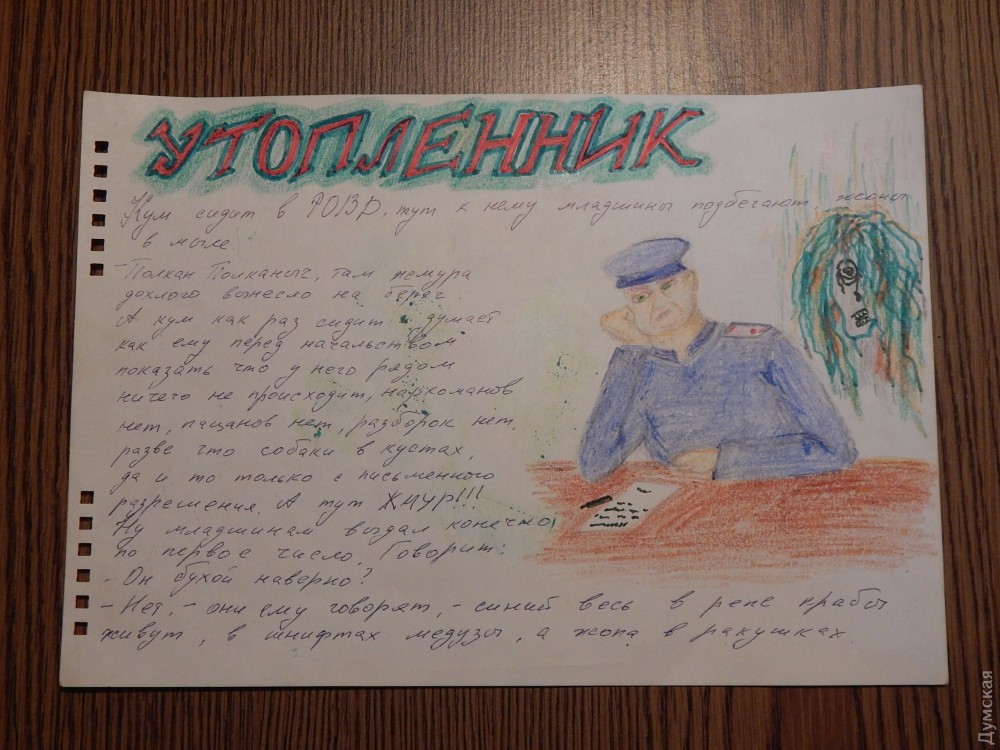 УТОПЛЕННИК
Кум сидит в РОВД, тут к нему младшины подбегают, жопы
в мыле.
- Полкан Полканыч, там жмура
дохлого вынесло на берег.
А кум как раз сидит думает
как ему перед начальством
показать что у него рядом
ничего не происходит, наркоманов
нет, пацанов нет, разборок нет,
разве что собаки в кустах,
да и то только с письменного
разрешения. А тут ЖМУР!!!
Ну младшинам выдал конечно
по первое число. Говорит:
- Он бухой наверно?
- Нет, - они ему говорят, - синий весь в репе крабы
живут, в шнифтах медузы, а жопа в ракушках.
Думская